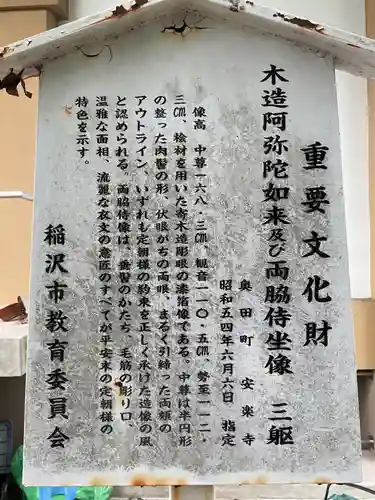 重要文化財
木造阿弥陀如来及び両脇侍坐像　三躯
奥田町　安楽寺
昭和五四年六月六日　指定
像高　中尊一六八・三㎝、観音一一〇・五㎝、勢至一一二・
三㎝、桧材を用いた寄木造彫眼の漆箔像である。中尊は半円形
の整った肉髻の形、伏眼がちの両眼、まるく引締った両頬の
アウトライン、いずれも定朝様の約束を正しく承けた造像の風
と認められる。両脇侍像は、垂髻のかたち、毛筋の彫り口、
温雅な面相、流麗な衣文の意匠のすべてが平安末の定朝様の
特色を示す。
稲沢市教育委員会